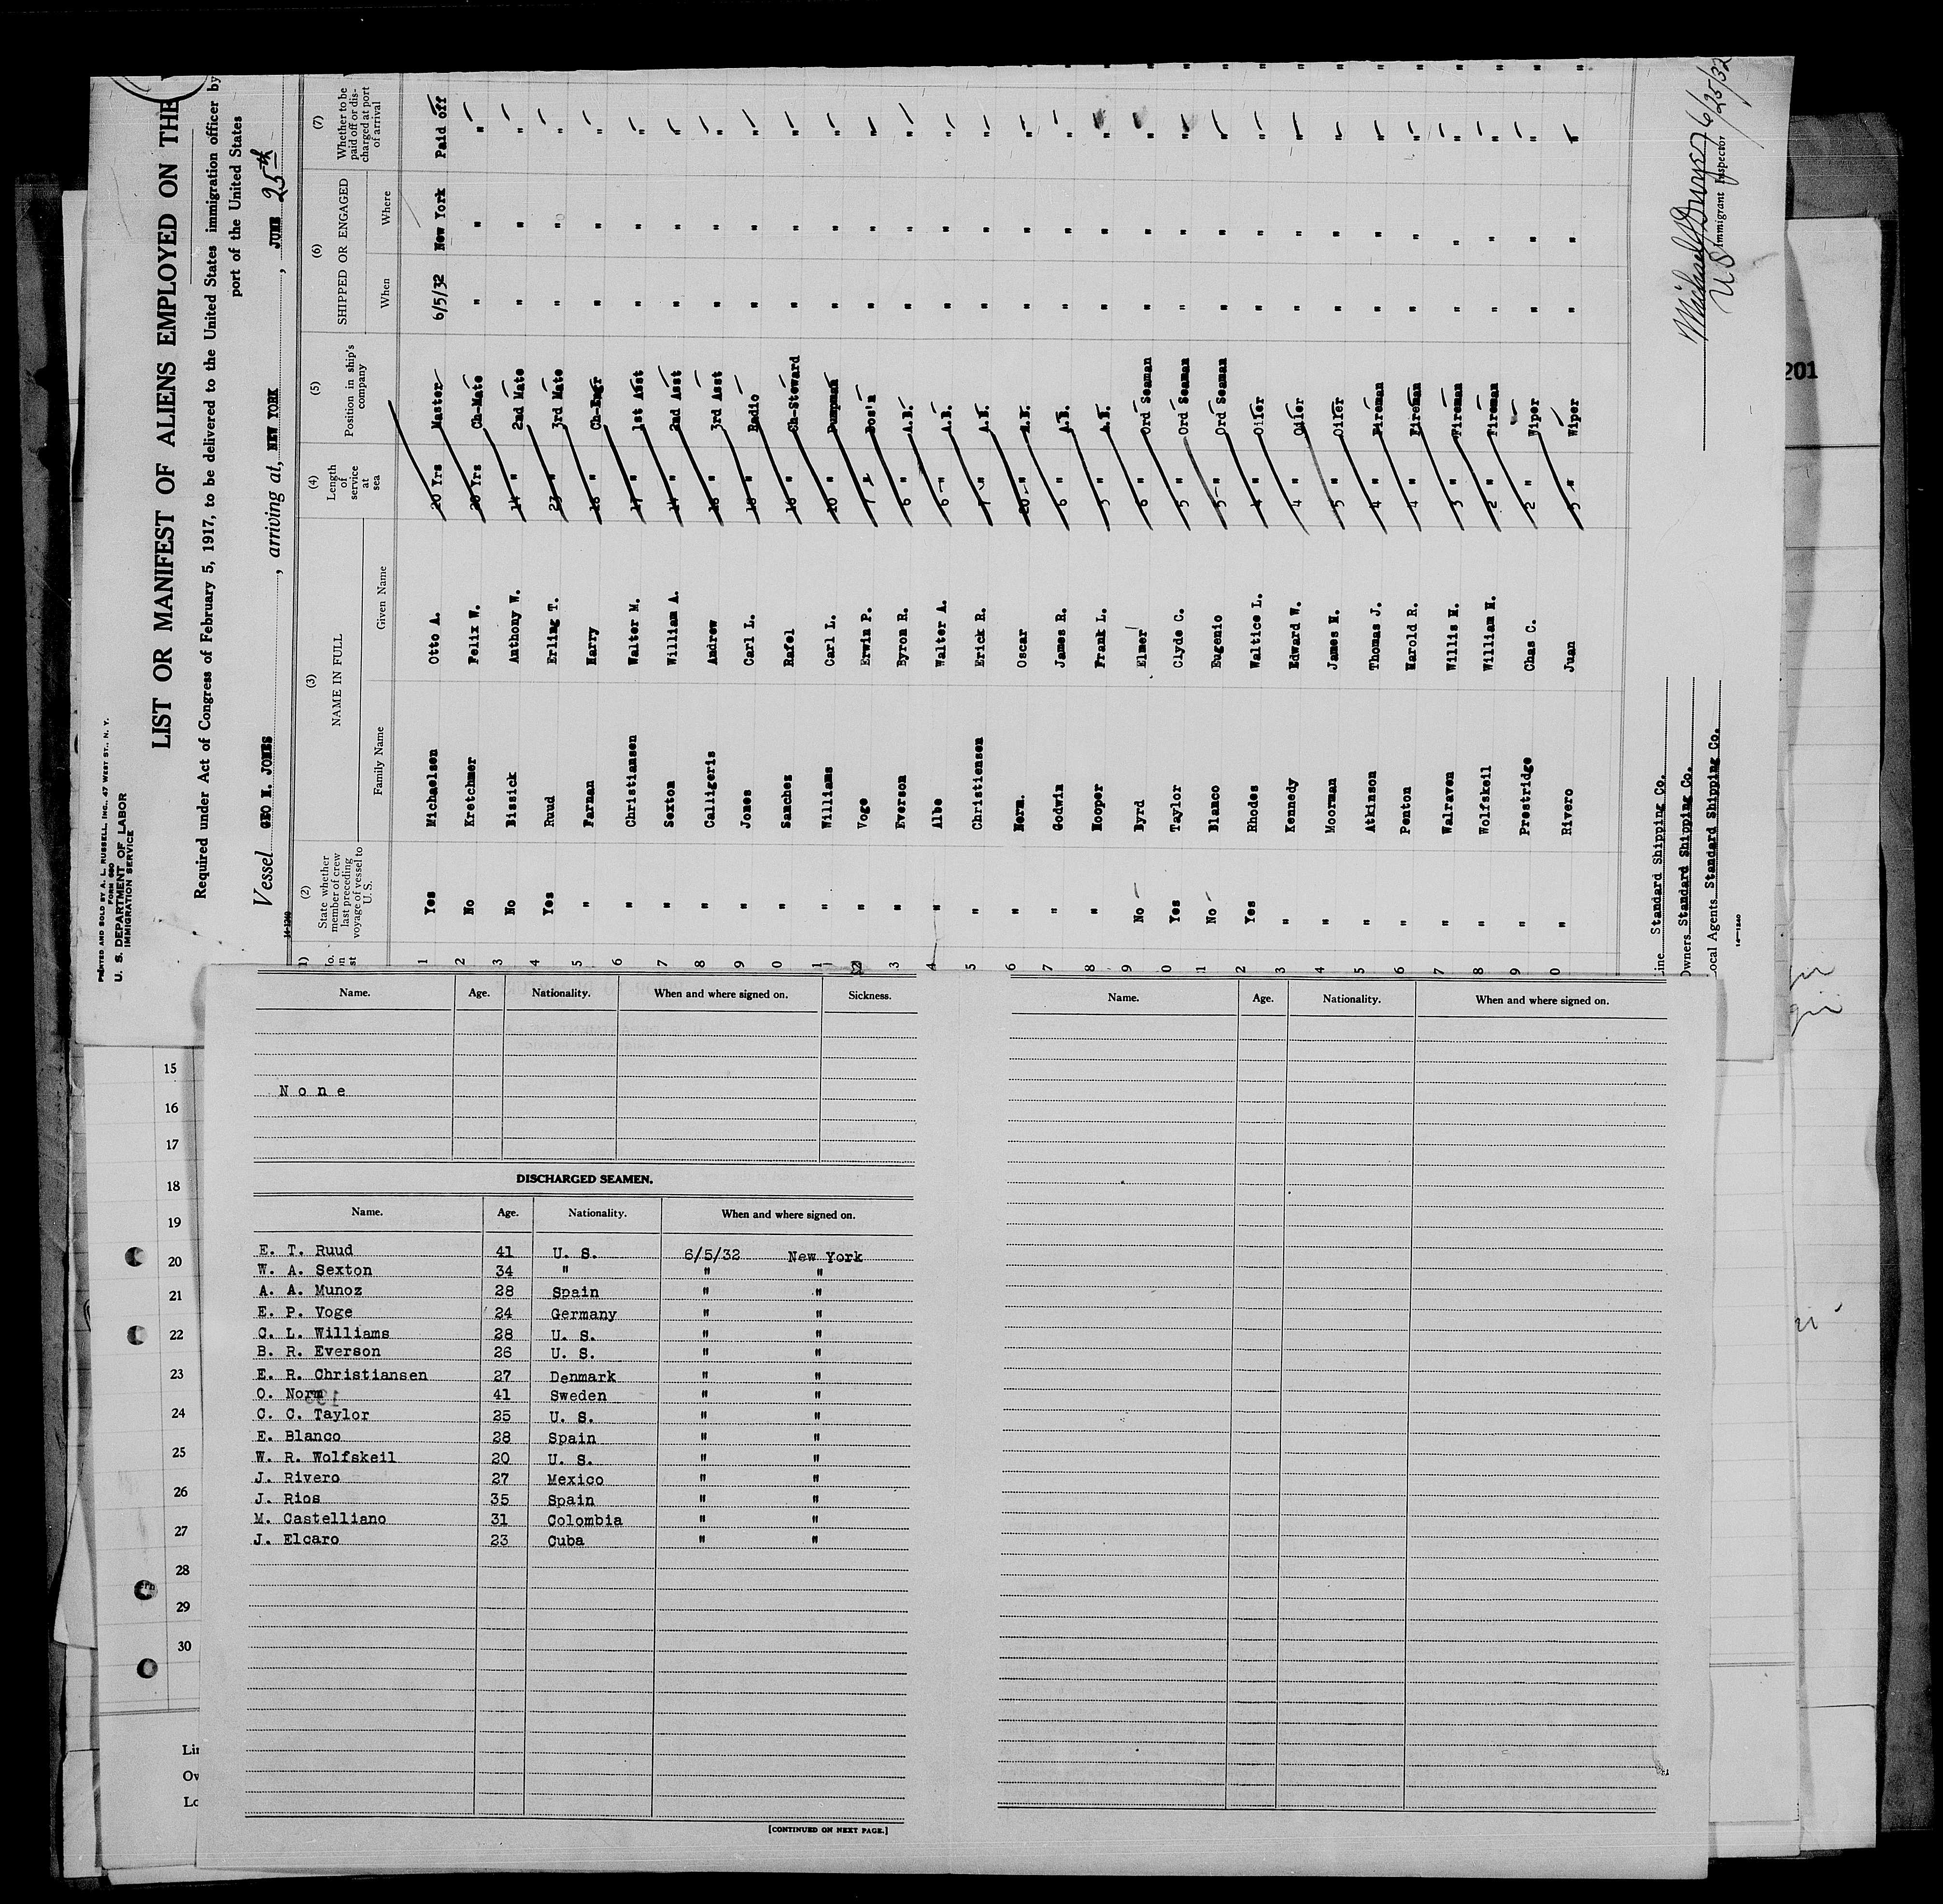 PRINTED AND SOLD BY A. L. RUSSELL, INC., 47 WEST ST., N. Y.
FORM 680
U. S. DEPARTMENT OF LABOR
IMMIGRATION SERVICE
LIST OR MANIFEST OF ALIENS EMPLOYED ON THE
Required under Act of Congress of February 5, 1917, to be delivered to the United States immigration officer by
port of the United States
Vessel GEO H. JONES, arriving at, NEW YORK, JUNE 25th
(2) (3) (4) (5) (6) (7)
State whether member of crew last preceding voyage of vessel to U.S. NAME IN FULL Length of service at sea Position in ship's company SHIPPED OR ENGAGED Whether to be paid off or discharged at port of arrival
Family Name Given Name When Where
1 Yes Michaelsen Otto A. 20 Yrs Master 6/5/32 New York Paid off
2 No Kretchmer Felix W. 20 Yrs Ch-Mate " " "
3 No Bissick Anthony W. 14 " 2nd Mate " " "
4 Yes Ruud Erling T. 23 " 3rd Mate " " "
5 " Farnan Harry 16 " Ch-Engr " " "
6 " Christiansen Walter M. 17 " 1st Asst " " "
7 " Sexton William A. 14 " 2nd Asst " " "
8 " Calligeris Andrew 18 " 3rd Asst " " "
9 " Jones Carl L. " Radio " " "
0 " Sanchez Rafel " Ch-Steward " " "
1 " Williams Carl L. 10 " Pumpman " " "
" Voge Erwin P. 7 " Bos'n " " "
3 " Everson Byron R. 6 " A.B. " " "
4 " Albe Walter A. 6 " A.B. " " "
5 " Christiensen Erick R. 7 " A.B. " " "
6 " Norm. Oscar 20 " A.B. " " "
7 " Godwin James R. 6 " A.B. " " "
8 " Hooper Frank L. 5 " A.B. " " "
9 No Byrd Elmer 6 " Ord Seaman " " "
0 Yes Taylor Clyde C. 5 " Ord Seaman " " "
1 No Blanco Eugenio 5 " Ord Seaman " " "
2 Yes Rhodes Waltice L. 4 " Oiler " " "
3 " Kennedy Edward W. 4 " Oiler " " "
4 " Moorman James H. 5 " Oiler " " "
5 " Atkinson Thomas J. 4 " Fireman " " "
6 " Penton Harold R. 4 " Fireman " " "
7 " Walraven Willis H. 3 " Fireman " " "
8 " Wolfskeil William H. 2 " Fireman " " "
9 " Prestridge Chas C. 2 " Wiper " " "
0 " Rivero Juan 5 " Wiper " " "
Line Standard Shipping Co.
Owners Standard Shipping Co.
Local Agents Standard Shipping Co.
14-1240
6/25/32
U S Immigrant Inspector
201
Name. Age. Nationality. When and where signed on. Sickness.
None
DISCHARGED SEAMEN.
Name. Age. Nationality. When and where signed on.
E. T. Ruud 41 U. S. 6/5/32 New York
W. A. Sexton 34 " " "
A. A. Munoz 28 Spain " "
E. P. Voge 24 Germany " "
C. L. Williams 28 U. S. " "
B. R. Everson 26 U. S. " "
E. R. Christiansen 27 Denmark " "
O. Norm 41 Sweden " "
C. C. Taylor 25 U. S. " "
E. Blanco 28 Spain " "
W. R. Wolfskeil 20 U. S. " "
J. Rivero 27 Mexico " "
J. Rios 35 Spain " "
M. Castelliano 31 Colombia " "
J. Elcaro 23 Cuba " "
[CONTINUED ON NEXT PAGE.]
Name. Age. Nationality. When and where signed on.
15
16
17
18
19
20
21
22
23
24
25
26
27
28
29
30